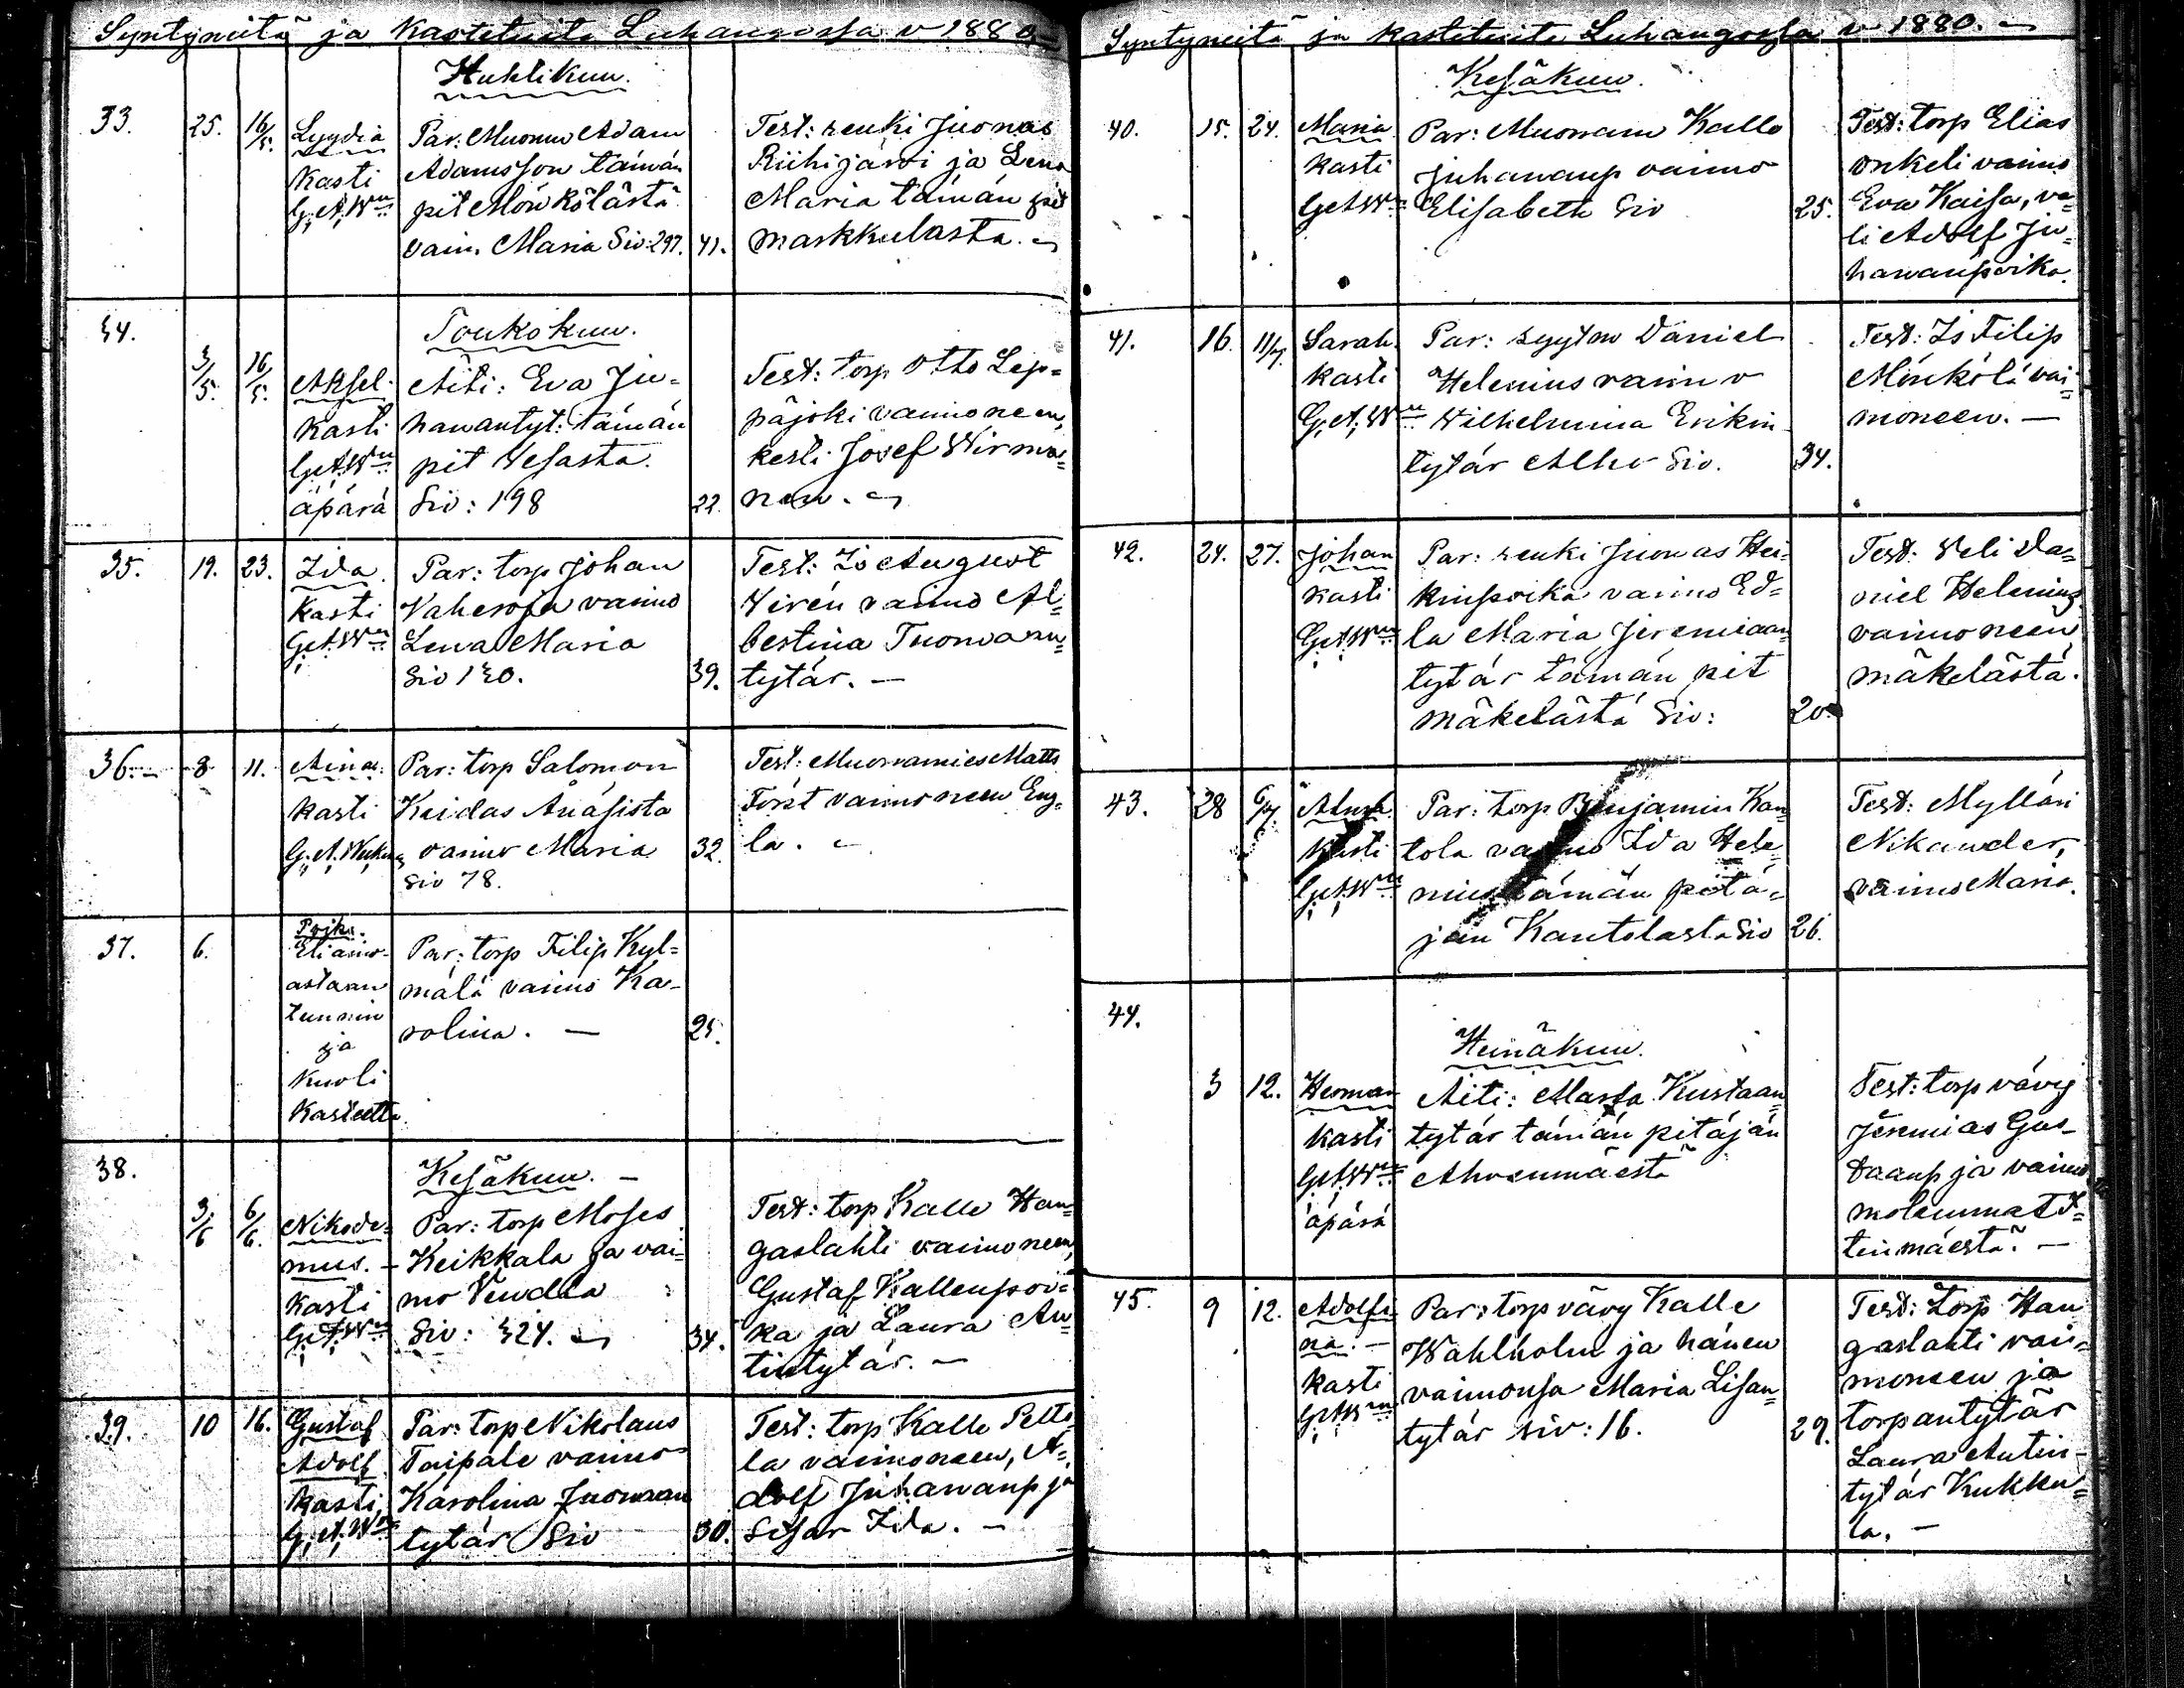 Syntyneitä ja Kastetuita Luhangossa v 1880
Huhtikuu.
33. 25. 16/5. Lyydia
Kasti
G. A. Wn
Par: Muonm Adam
Adamsson tämän
pit Mönkölästä
vaim. Maria Siv: 297. 41.
Test: renki Juonas
Riihijärvi ja Lena
Maria tämän pit
markkulasta.
34.
Toukokuu.
3/5. 16/5. Aksel.
Kasti
G. A. Wn
äpärä
Äiti: Eva Ju=
hanantyt: tämän
pit Vesasta.
Siv: 198 22.
Test: torp Otto Lep=
päjoki vaimoneen,
kesti Josef Wirma=
nen.
35. 19. 23. Ida.
Kasti
G. A. Wn
Par: torp Johan
Vaheroja vaimo
Lena Maria
Siv 130. 39.
Test: Is August
Viren vaimo Al=
bertina Tuomaan=
tytär. —
36. 8 11. Aina.
kasti
G. A.
Par: torp Salomon
Keidas
vaimo Maria 32.
Siv 78.
Test: Muonamies Matts
Forst vaimoneen Eug=
la.
37. 6. Poika.
Eli aino-
astaan
tunnin
ja
Kuoli
Kasteetta.
Par: torp Filip Kyl=
mälä vaimo Ka-
rolina. — 25.
38.
Kesäkuu. —
3/6 6/6. Nikode=
mus. —
Kasti
G. A. Wn
Par: torp Moses
Keikkala ja vai=
mo Vendla
Siv: 324. 34.
Test: torp Kalle Han=
gaslahti vaimoneen,
Gustaf Kallenpoi=
ka ja Laura An=
tintytär. —
39. 10 16. Gustaf
Adolf
Kasti
G. A. Wn
Par: torp Nikolaus
Taipale vaimo
Karolina Juonaan
tytär Siv 30.
Test: torp Kalle Pelto
la vaimoneen, A=
dolf Juhananp ja
Sisar Ida. —
Syntyneitä ja kastetuita Luhangossa v 1880.
Kesäkuu.
40. 15. 24. Maria
kasti
G. A. Wn
Par: Muonam Kalle
Juhananp vaimo
Elisabeth Siv 25.
Test: torp Elias
Onkeli vaimo
Eva Kaisa, ve=
li Adolf Ju=
hananpoika.
41. 16. 11/7. Sarah.
kasti
G. A. Wn
Par: syytm Daniel
Helenius vaimo
Wilhelmina Erikin
tytär Alho Siv. 34.
Test: Is Filip
Mönkölä vai=
moneen. —
42. 24. 27. Johan
kasti
G. A. Wn
Par: renki Juonas Hei=
kinpoika vaimo Ed=
la Maria Jeremiaan
tytär tämän pit
mäkelästä Siv: 20.
Test: Veli Da=
niel Helenius
vaimoneen
mäkelästä.
43. 28
kasti
G. A. Wn
Par: torp Benjamin Kan=
tola vaimo Ida Hele=
nius tämän pitä=
jän Kantolasta Siv 26.
Test: Mylläri
Nikander,
vaimo Maria.
44.
Heinäkuu.
3 12. Herman
kasti
G. A. Wn
äpärä
Äiti: Marta Kustaan=
tytär tämän pitäjän
Ahvenmäestä
Test: torp vävy
Jeremias Gus-
taanp ja vaimo
molemmat
tinmäestä. —
45. 9 12. Adolfi
na. —
kasti
G. A. Wn
Par: torp vävy Kalle
Wahlholm ja hänen
vaimonsa Maria Lisan=
tytär siv: 16. 29.
Test: torp Han
gaslahti vai=
moneen ja
torpantytär
Laura Antin-
tytär Kukku=
la. —